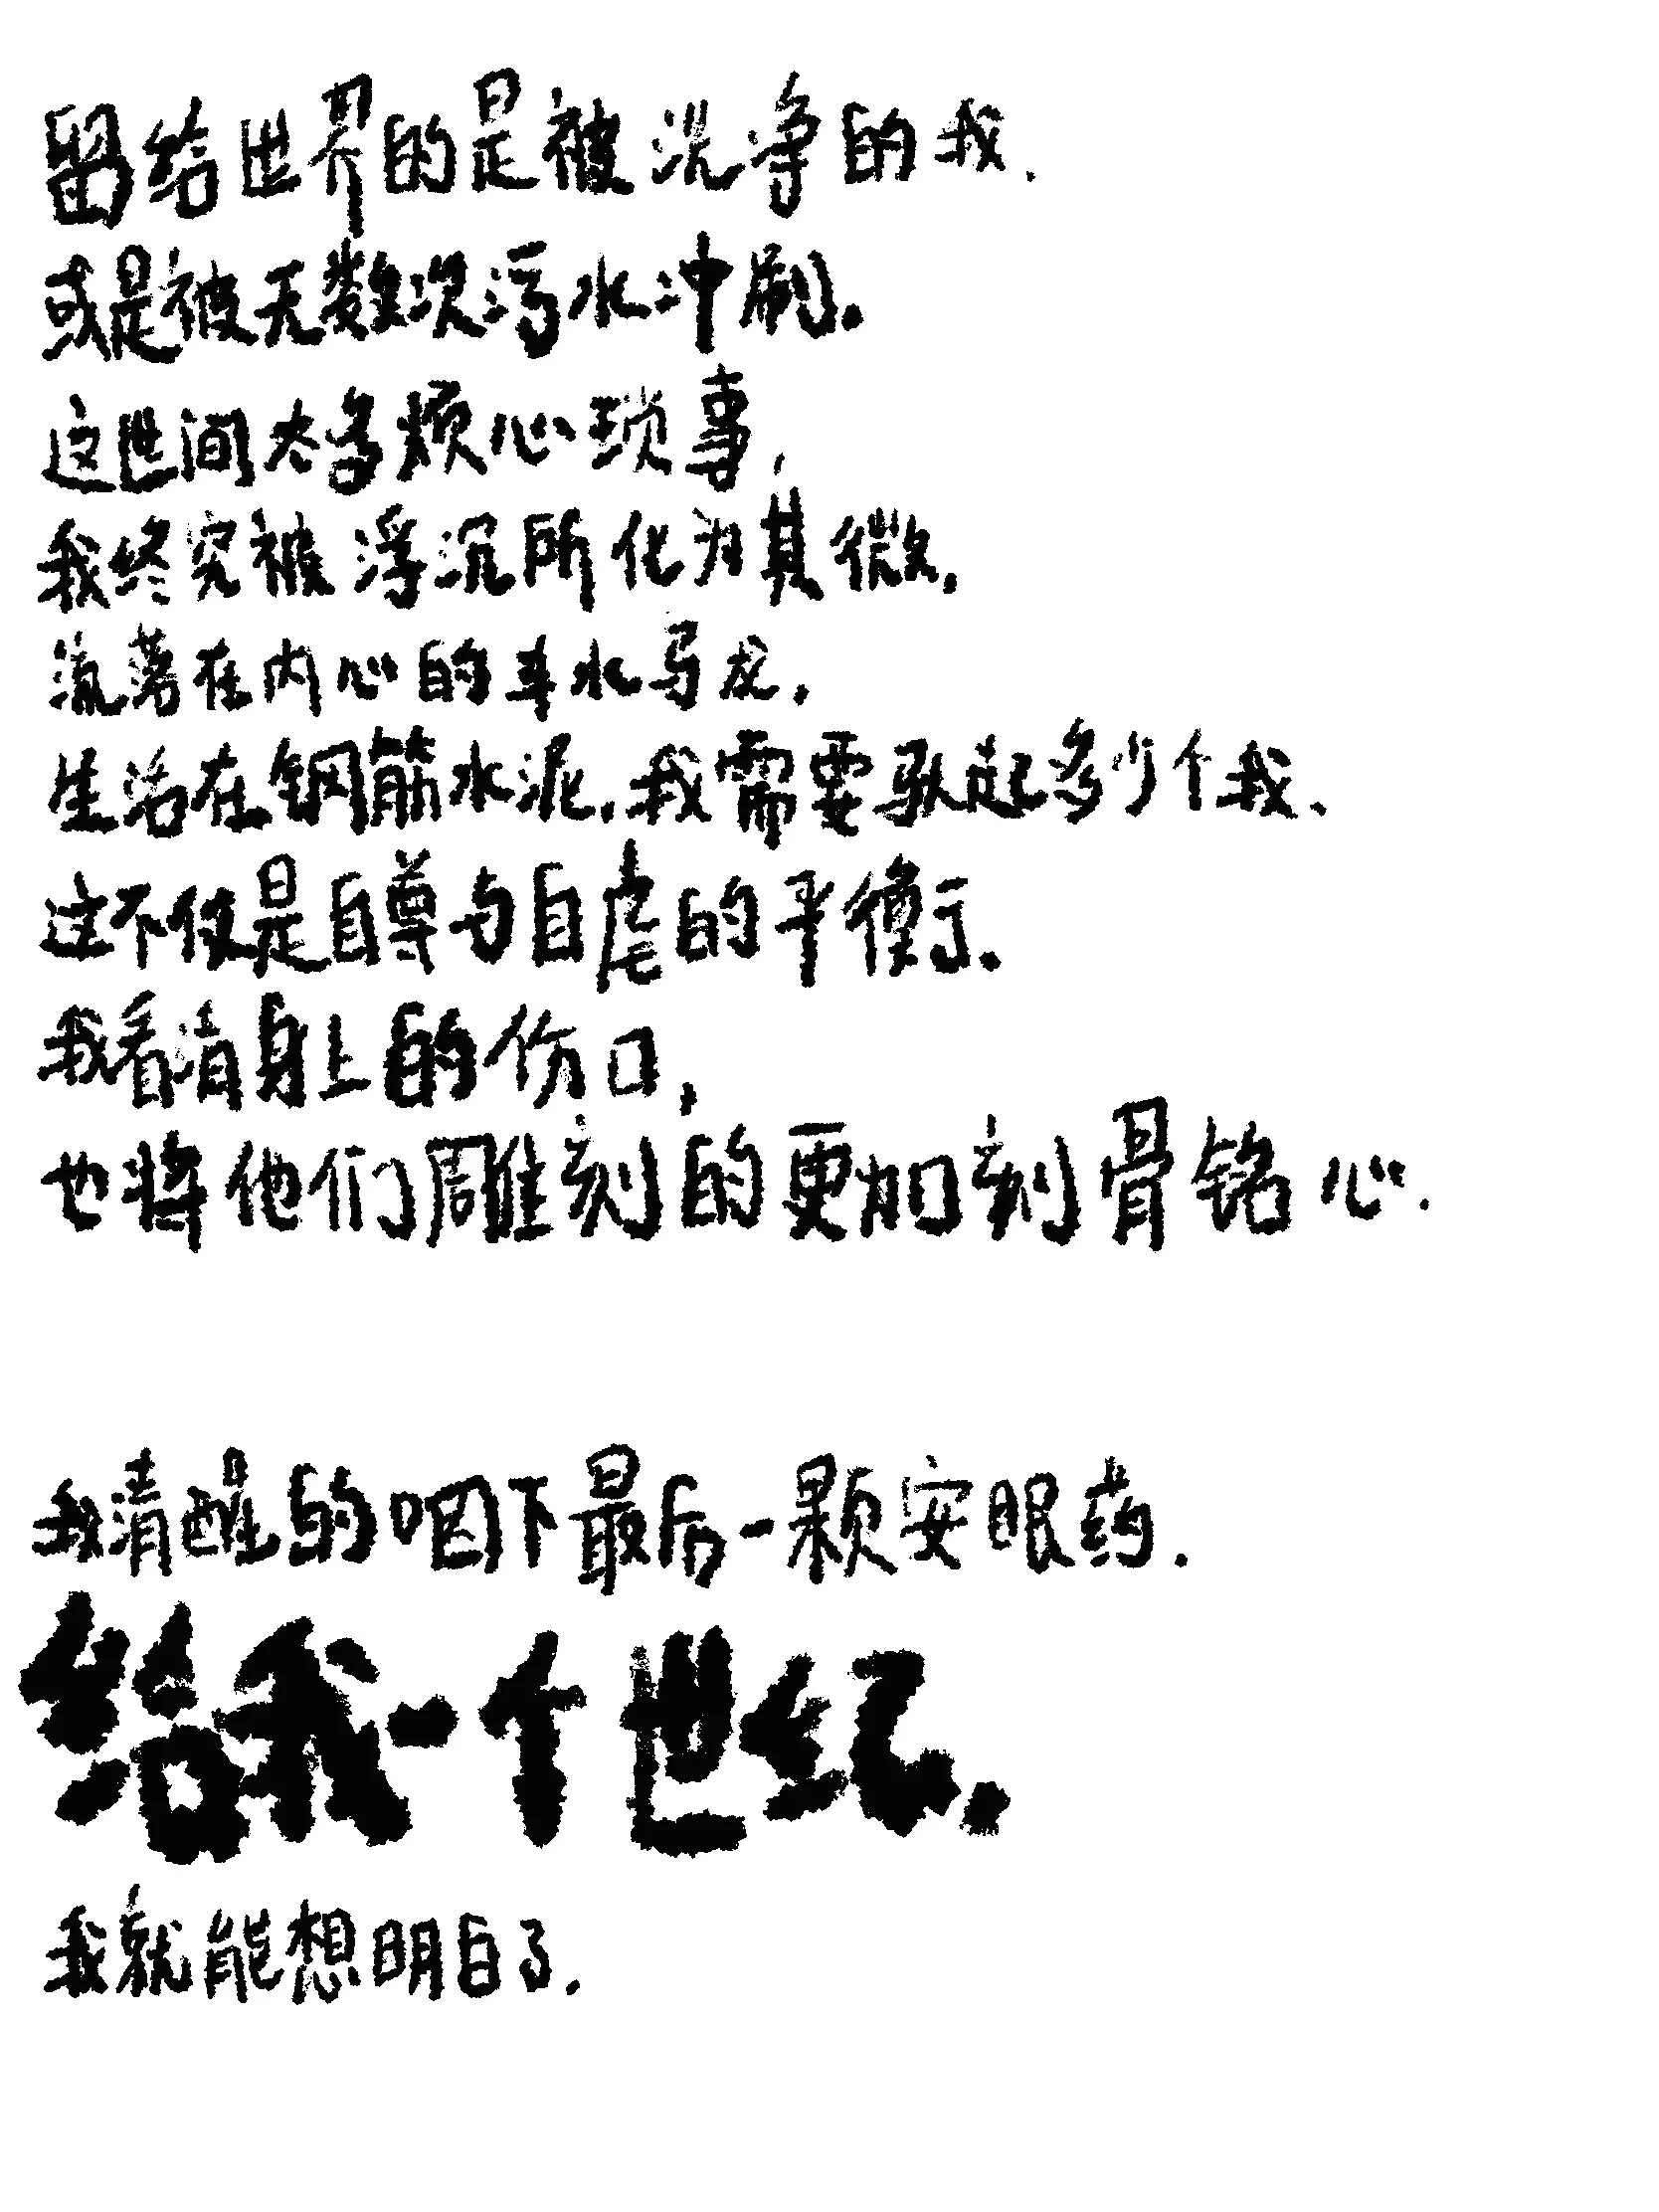 留给世界的是被洗净的我.
或是被无数次污水冲刷.
这世间太多烦心琐事,
我终究被浮沉所化为其微.
流荡在内心的车水马龙.
生活在钢筋水泥.我需要驮起多少个我.
这不仅是自尊与自虐的平衡.
我看清身上的伤口,
也将他们雕刻的更加刻骨铭心.
我清醒的咽下最后一颗安眠药.
给我一个世纪.
我就能想明白了.